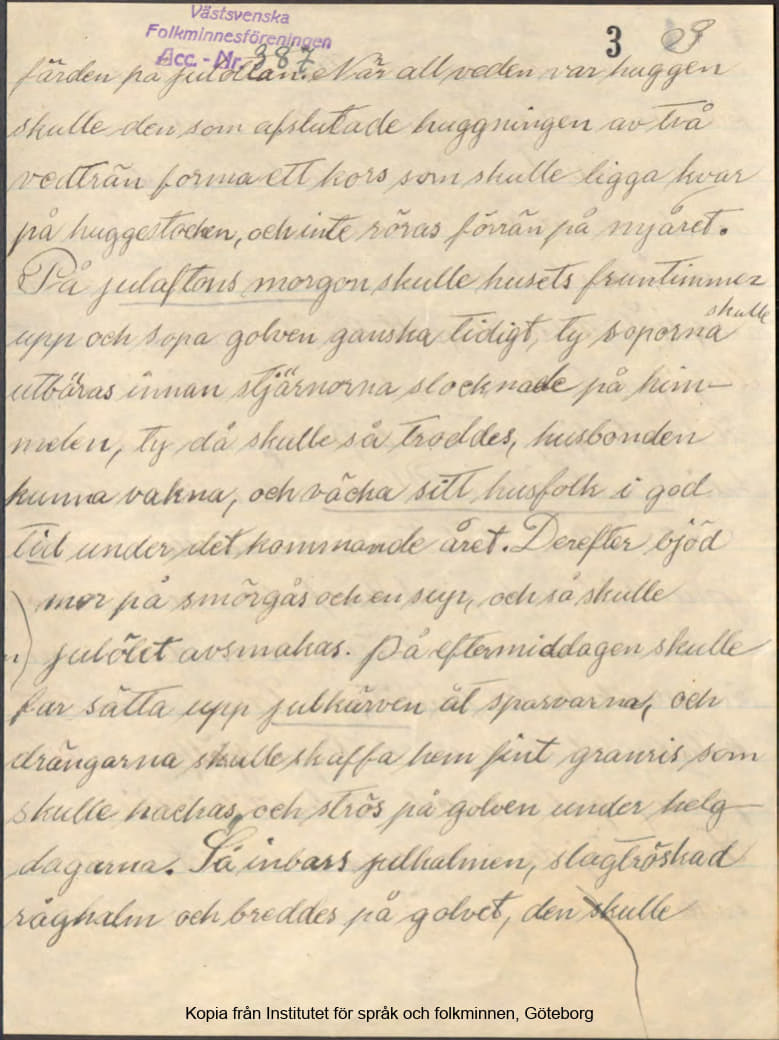 Västsvenska
Folkminnesföreningen
Acc. - Nr. 387
3
färden på julottan. När all veden var huggen
skulle den som afslutade huggningen av två
vedträn forma ett kors som skulle ligga kvar
på huggestocken, och inte röras förrän på nyåret.
På julaftons morgon skulle husets fruntimmer
upp och sopa golven ganska tidigt, ty soporna skulle
utbäras innan stjärnorna slocknade på him-
melen, ty då skulle så troddes, husbonden
kunna vakna, och väcka sitt husfolk i god
tid under det kommande året. Derefter bjöd
mor på smörgås och en sup, och så skulle
julölet avsmakas. På eftermiddagen skulle
far sätta upp julkärven åt sparvarna, och
drängarna skulle skaffa hem fint granris som
skulle hackas, och strös på golven under helg-
dagarna. Så inbars julhalmen, slagtröskad
råghalm och breddes på golvet, den skulle
Kopia från Institutet för språk och folkminnen, Göteborg